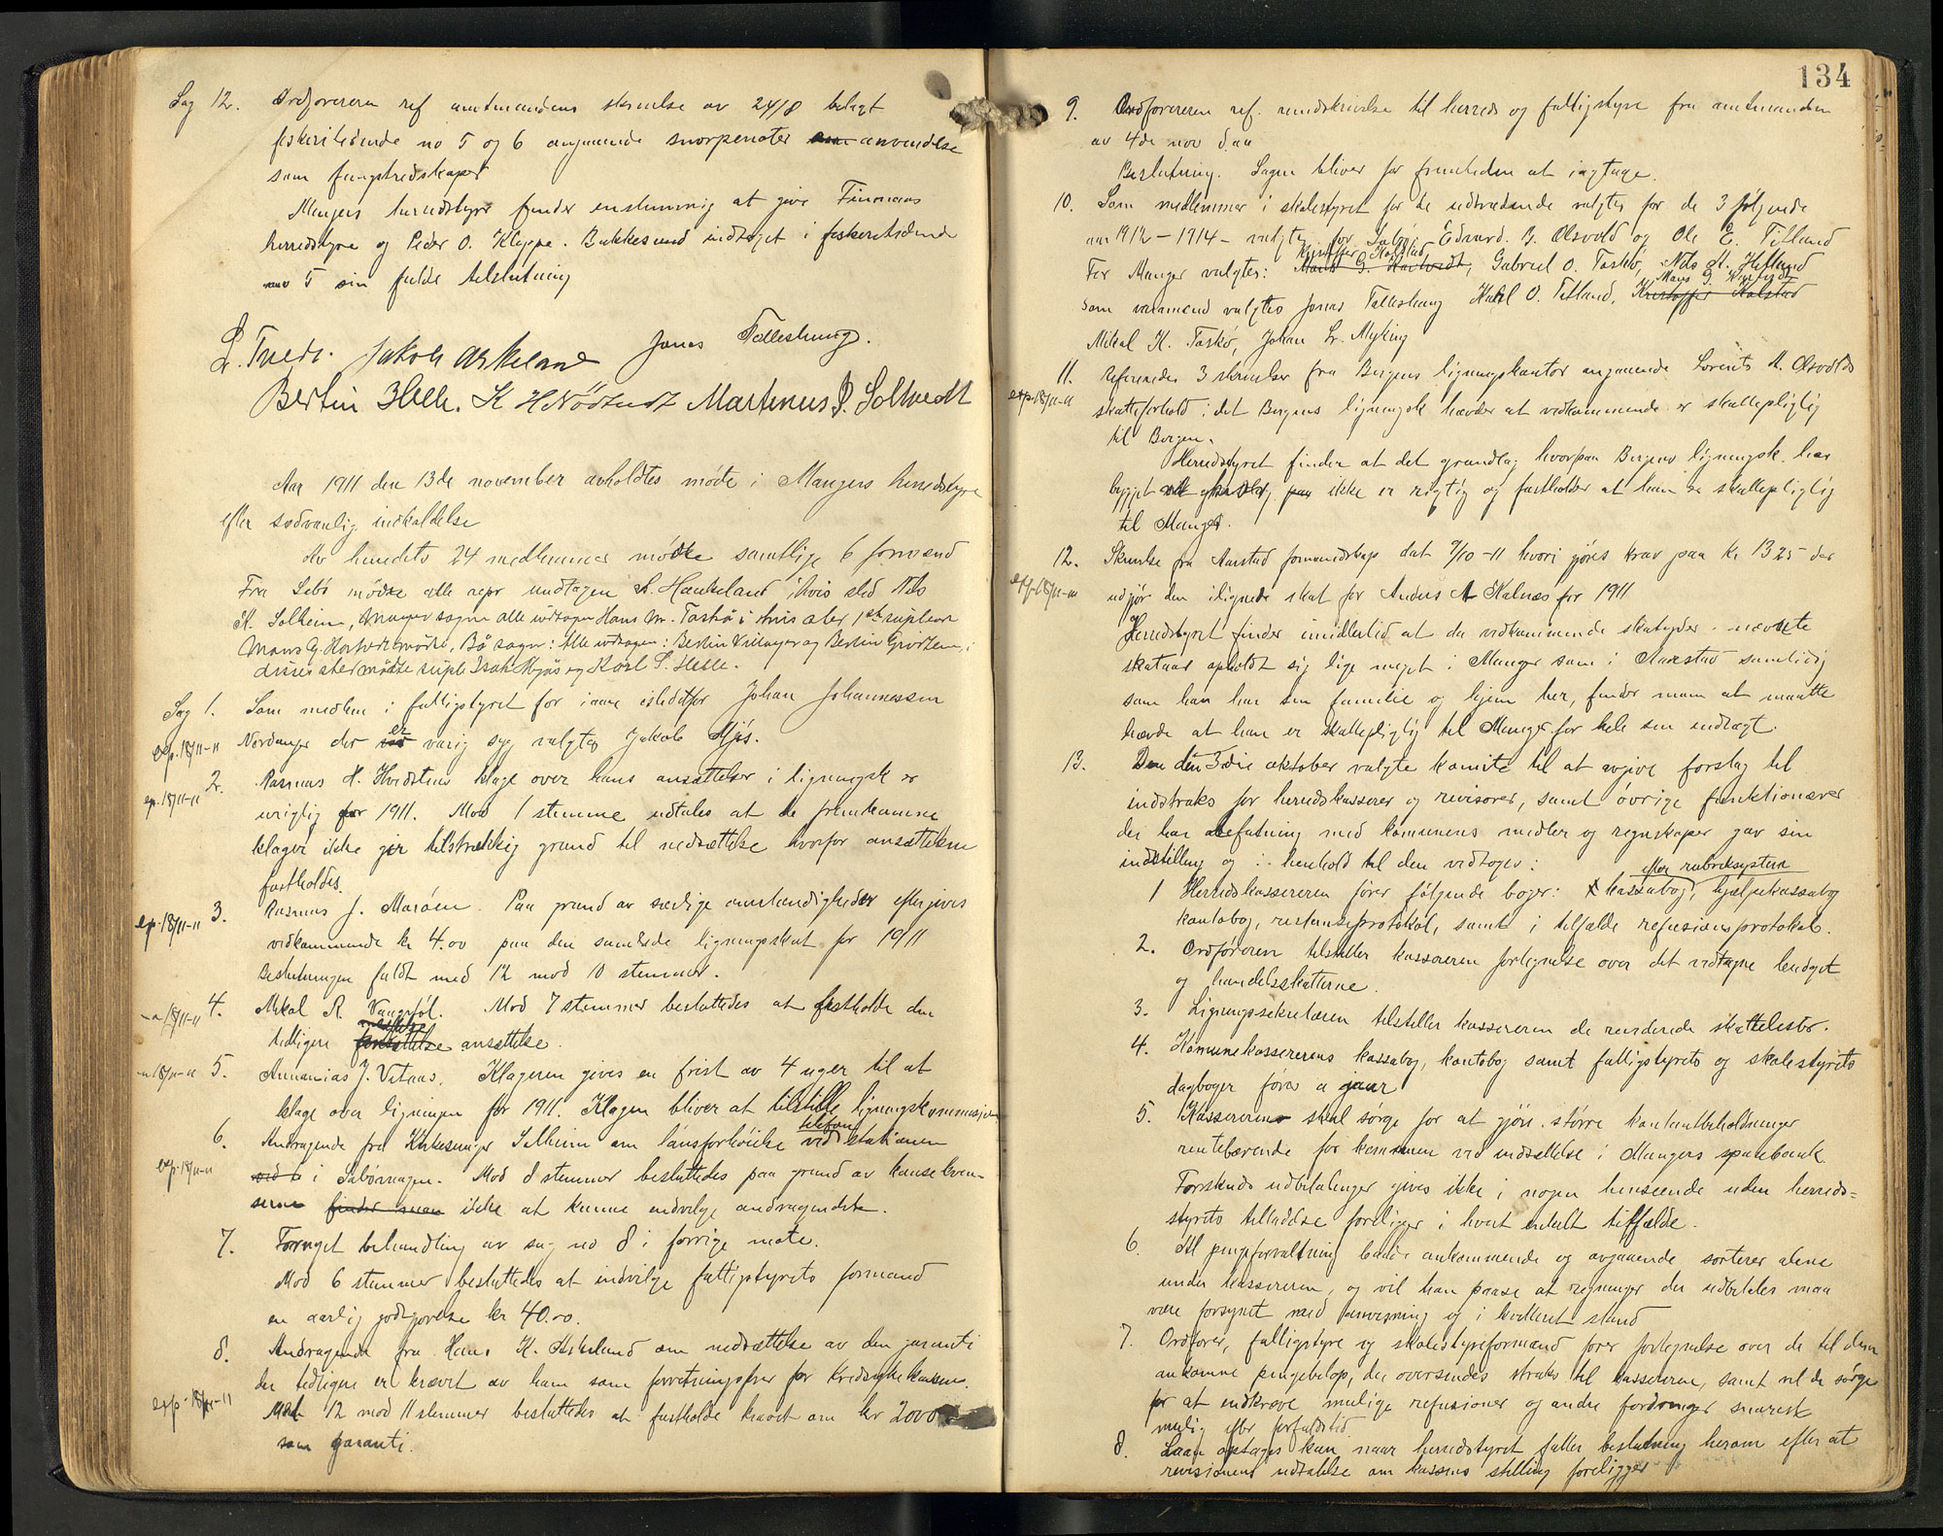 Sag 12. Ordføreren ref amtmandens skrivelse av 24/8 bilagt
fiskeritidende no 5 og 6 angaaende snorpenøter som anvendelse
som fangstredskaper
Mangers herredstyre finder enstemmig at give Finnaas
herredstyre og Peder O. Kleppe. Bakkesund indtaget i fiskeritidende
no 5 sin fulde tilslutning
L. Tveit. Jakob Askeland Jonas Tolleshaug.
Bertin Helle. K H Nødtvedt Martinus J. Soltvedt
Aar 1911 den 13de november avholdtes møte i Mangers herredstyre
efter sedvanlig indkaldelse
Av herredets 24 medlemmer møtte samtlige 6 formænd
Fra Sebø møtte alle repr undtagen A. Haukeland i hvis sted Nils
K. Solheim, Manger sogn alle undtagen Hans M. Taskø i hvis sted 1ste supleant
Mons G. Hartvedt møtte, Bø sogn: Alle undtagen: Bertin Villanger og Bertin Gjerstein, i
disses sted møtte supl. Isak Mjøs og Karl S. Helle.
Sag 1. Som medlem i fattigstyret for iaar istedetfor Johan Johannessen
exp. 18/11-11 Nordanger der var er varig syg valgtes Jakob Mjøs.
2. Rasmus H. Hvidstens klage over hans ansættelse i ligningsk. er
exp. 18/11-11 urigtig for 1911. Mod 1 stemme udtales at de fremkomne
klager ikke gir tilstrækkelig grund til nedsættelse hvorfor ansættelsen
fastholdes.
3. Rasmus J. Marøen. Paa grund av særlige omstændigheder eftergives
exp. 18/11-11 vedkommende kr 4.00 paa den samlede ligningskat for 1911
Beslutningen faldt med 12 mod 10 stemmer.
4. Mikal R. Vangstøl. Mod 7 stemmer besluttedes at fastholde den
18/11-11 tidligere fastsættelse ansættelse.
5. Annanias J. Vetaas. Klageren gives en frist av 4 uger til at
18/11-11 klage over ligningen for 1911. Klagen bliver at tilstille ligningskommissjonen
6. Andragende fra Kirkesanger Solheim om lønsforhøielse ved telefonstationen
exp. 18/11-11 ved i Sæbøvaagen. Mod 8 stemmer besluttedes paa grund av konsekven-
serne finder man ikke at kunne indvilge andragendet.
7. Foretaget behandling av sag no 8 i forrige møte.
Mod 6 stemmer besluttedes at indvilge fattigstyrets formand
en aarlig godtgjørelse kr 40.00.
8. Andragende fra Hans K. Askeland om nedsættelse av den garanti
der tidligere er krævet av ham som forretningsfører for Kredssykekassen.
exp. 18/11-11 Med 12 mod 11 stemmer besluttedes at fastholde kravet om kr 2000
som garanti.
134
9. Ordføreren ref. rundskrivelse til herreds og fattigstyre fra amtmanden
av 4de nov d.aa
Beslutning. Sagen bliver for fremtiden at iagtage.
10. Som medlemmer i skolestyret for de udtrædende valgtes for de 3 følgende
aar 1912 – 1914 – valgtes for Sæbø: Edvard. B. Olsvold og Ole E. Titland
For Manger valgtes: Mons G. Hartvedt, Kristoffer Halstad, Gabriel O. Toskø, Nils A. Hetland
som varamænd valgtes Jonas Tolleshaug Karl O. Titland, Kristoffer Halstad Mons G. Hartvedt
Mikal K. Toskø, Johan Lr. Myking
11. Refereredes 3 skrivelser fra Bergens ligningskontor angaaende Lorents M. Olsvolds
exp. 18/11-11 skatteforhold i det Bergens ligningsk. hævder at vedkommende er skattepligtig
til Bergen.
Herredstyret finder at det grundlag hvorpaa Bergens ligningsk. har
bygget ikke er rigtig og fastholder at han er skattepligtig
til Manger.
12. Skrivelse fra Aarstad formandskap dat 7/10 -11 hvori gjøres krav paa kr 13.25 der
exp. 18/11-11 utgjør den ilignede skat for Anders A Kalnæs for 1911
Herredstyret finder imidlertid at da vedkommende skatyder i nævnte
skataar opholdt sig lige meget i Manger som i Aarestad samtidig
som han har sin familie og hjem her, finder man at maatte
hævde at han er skattepligtig til Manger for hele sin indtægt.
13. Den den 3die oktober valgte komite til at avgive forslag til
indstruks for herredskasserer og revisorer, samt øvrige funktionærer
der har befatning med komunens midler og regnskaper gav sin
indstilling og i henhold til den vedtoges:
1 Herredskassereren fører følgende bøger: kassabog, efter rubriksystem hjælpekassabog
kontobog, restanseprotokol, samt i tilfælde refusionsprotokol.
2. Ordføreren tilstiller kassereren fortegnelse over det vedtagne budget
og handelsskatterne.
3. Ligningssekretæren tilstiller kassereren de reviderede skattelister.
4. Komunekassererens kassabog, kontobog samt fattigstyrets og skolestyrets
dagbøger føres a jour
5. Kassereren skal sørge for at gjøre større kontantbeholdninger
rentebærende for kommunen ved indsættelse i Mangers sparebank.
Forskuds udbetalinger gives ikke i nogen henseende uden herreds=
styrets tilladelse foreligger i hvert enkelt tilfælde.
6. Al pengeforvaltning baade ankommende og avgaaende sorterer alene
under kassereren, og vil han paase at regninger der udbetales maa
være forsynet med anvisning og i kvitteret stand
7. Ordfører, fattigstyre og skolestyreformand fører fortegnelse over de til dem
ankomne pengebeløp, der oversendes straks til kassereren, samt vil de sørge
for at indkræve mulige refusioner og andre fordringer snarest
mulig efter forfaldstid.
8. Laan optages kun naar herredstyret fatter beslutning herom efter at
revisionens udtalelse om kassens stilling foreligger